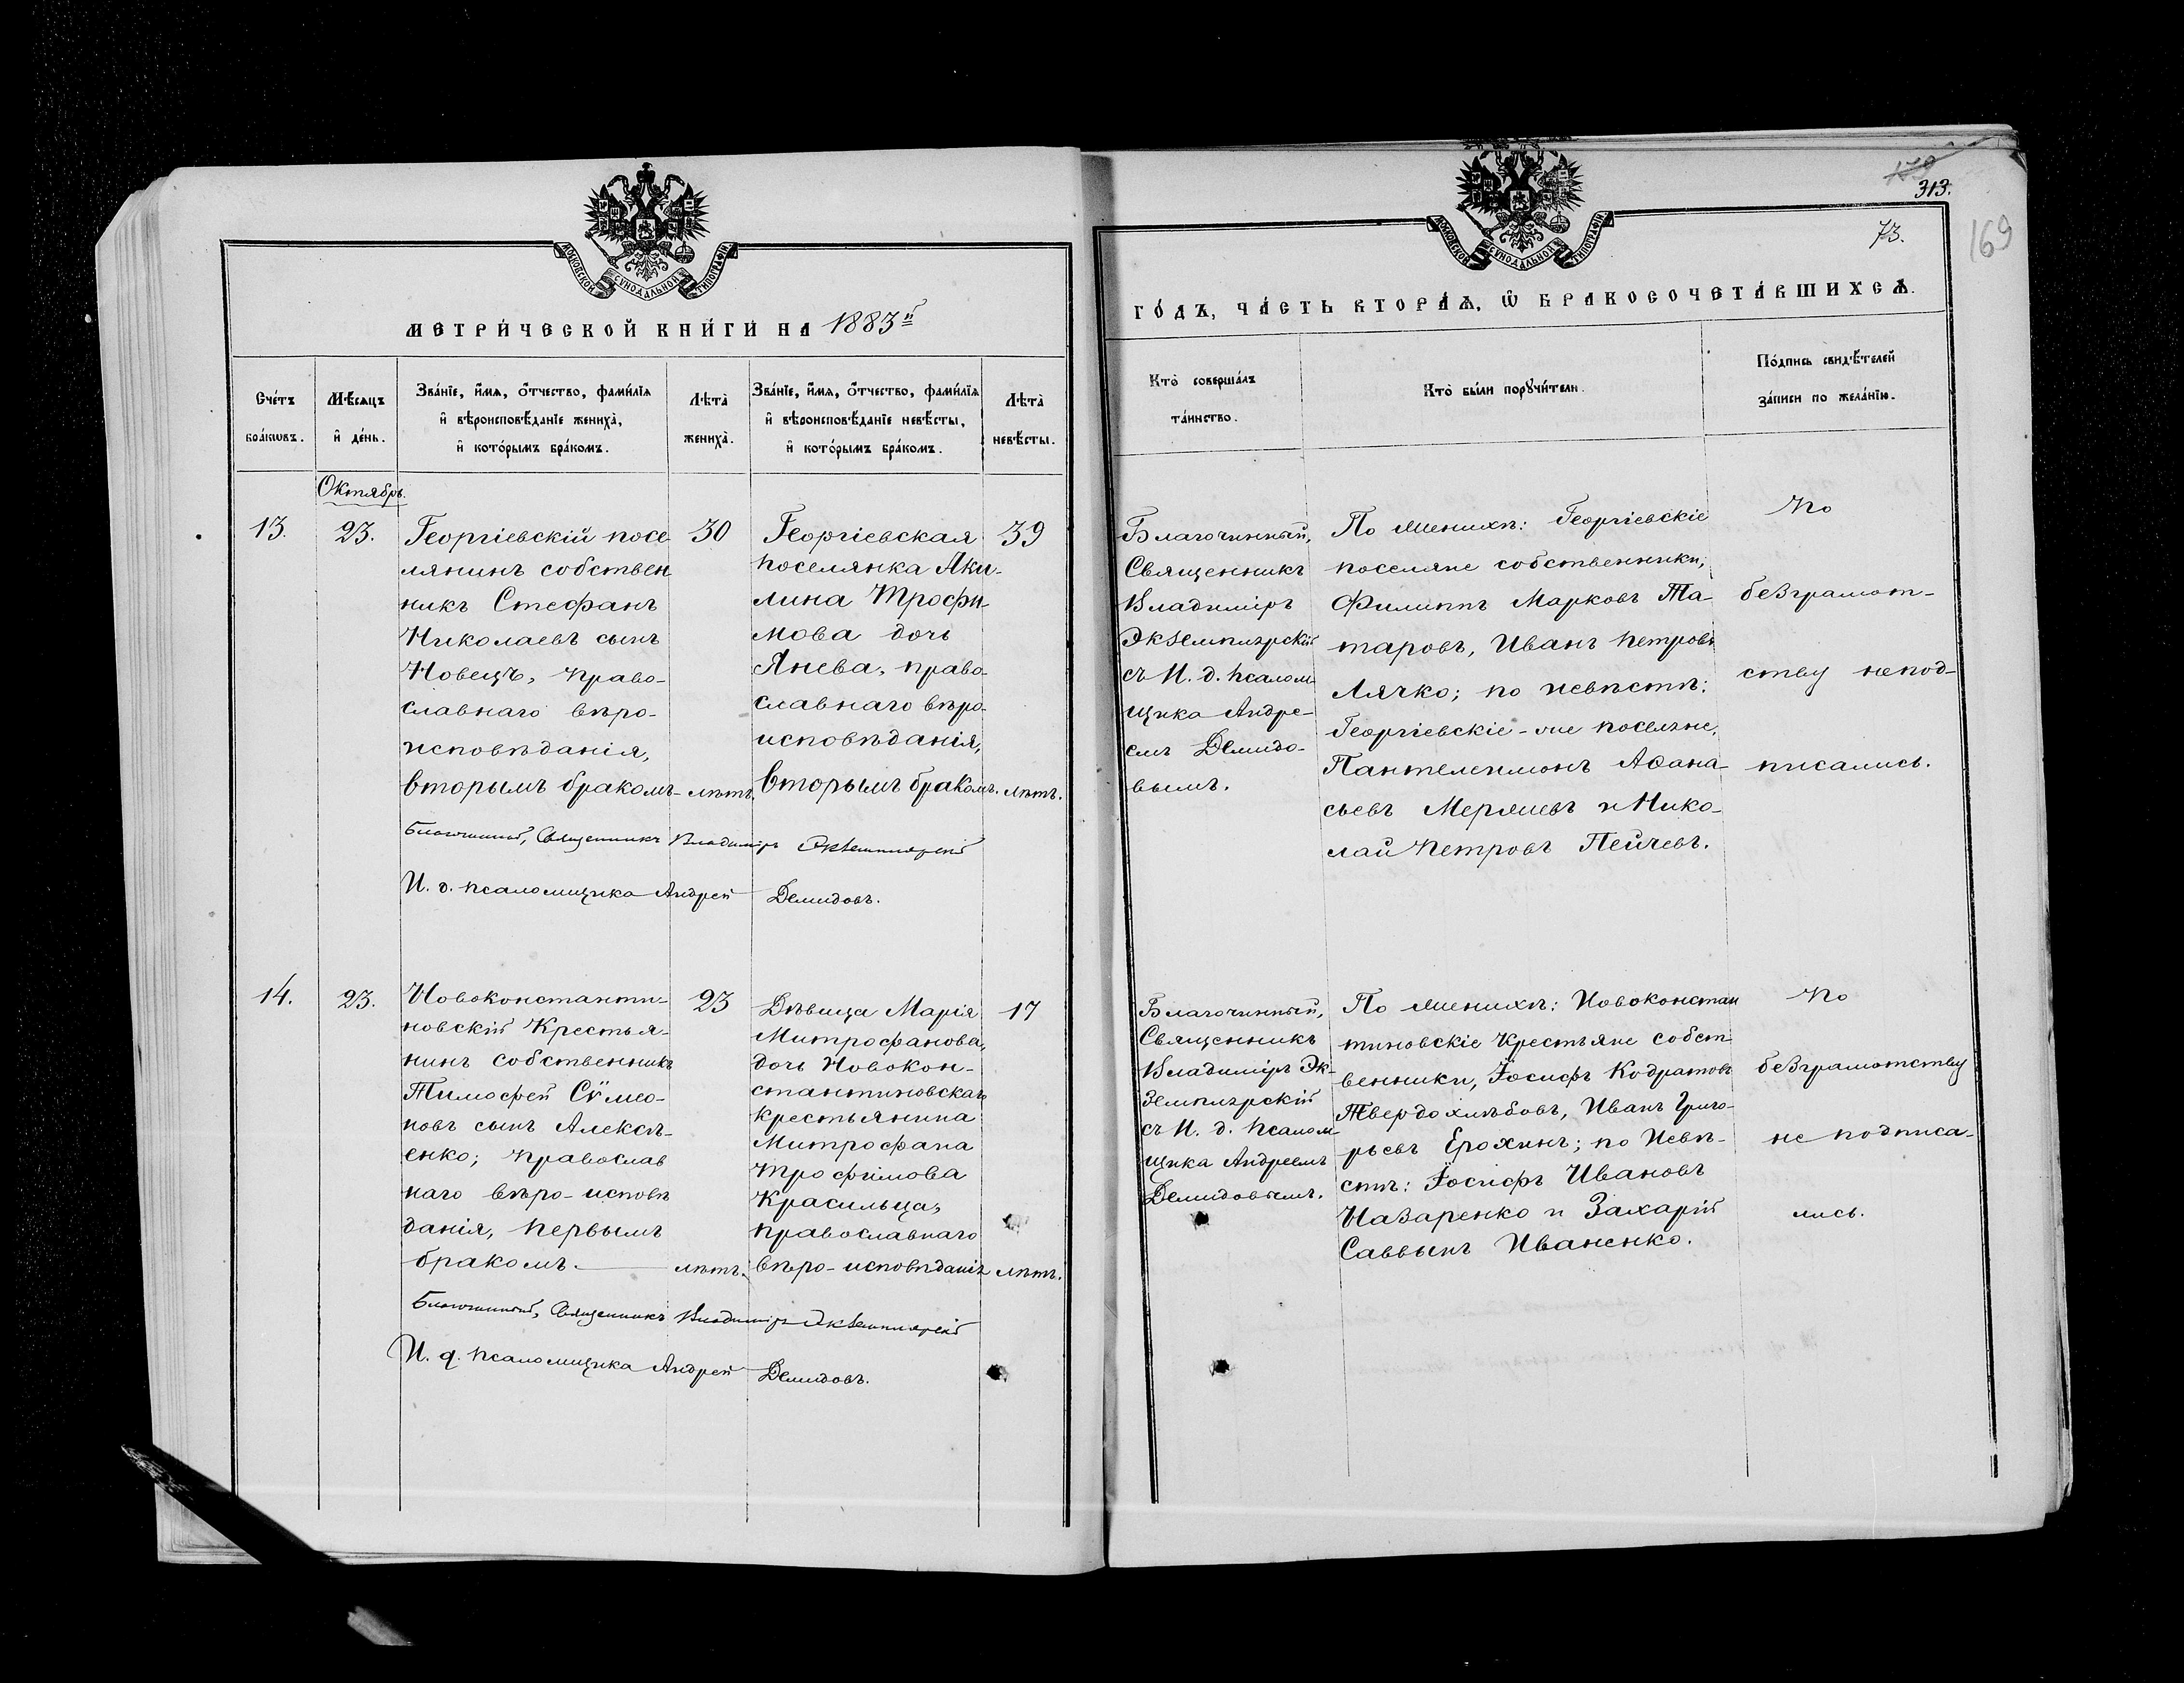 МОСКОВСКОЙ СУНОДАЛЬНОЙ ТИПОГРАФІИ
МЕТРИ́ЧЕСКОЙ КНИ́ГИ НА 1883й
Сче́тъ бра́кѡвъ.
Мѣ́сѧцъ и҆ де́нь.
Зва́нїе, и҆́мѧ, ѻ҆́тчество, фами́лїѧ
и҆ вѣроисповѣ́данїе жениха̀,
и҆ кото́рымъ бра́комъ.
Лѣта̀ жениха̀.
Зва́нїе, и҆́мѧ, ѻ҆́тчество, фами́лїѧ
и҆ вѣроисповѣ́данїе невѣ́сты,
и҆ кото́рымъ бра́комъ.
Лѣта̀ невѣ́сты.
Октябрь.
13.
23.
Георгіевскій посе-
лянинъ собствен
никъ Стефанъ
Николаевъ сынъ
Новецъ, право-
славнаго вѣро-
исповѣданія,
вторымъ бракомъ-
30
лѣтъ.
Георгіевская
поселянка Аки-
лина Трофи-
мова дочь
Янева, право-
славнаго вѣро-
исповѣданія,
вторымъ бракомъ.
39
лѣтъ.
Благочинный, Священникъ Владиміръ Экземплярскій
И. д. псаломщика Андрей Демидовъ.
14.
23.
Новоконстанти-
новскій Крестья-
нинъ собственникъ
Тимофей Сѵмео-
новъ сынъ Алексѣ-
енко; православ
наго вѣро-исповѣ
данія, первымъ
бракомъ.
23
лѣтъ.
Дѣвица Марія
Митрофанова,
дочь Новокон-
стантиновскаго
крестьянина
Митрофана
Трофимова
Красильца,
православнаго
вѣро-исповѣданія
17
лѣтъ.
Благочинный, Священникъ Владиміръ Экземплярскій
И. д. псаломщика Андрей Демидовъ.
МОСКОВСКОЙ СУНОДАЛЬНОЙ ТИПОГРАФІИ
313.
73.
169
ГО́ДЪ, ЧА́СТЬ ВТОРА́Ѧ, Ѡ҆ БРАКОСОЧЕТА́ВШИХСѦ.
Кто̀ соверша́лъ
та́инство.
Кто̀ бы́ли порꙋчи́тели.
По́дпись свидѣ́телей
за́писи по жела́нїю.
Благочинный,
Священникъ
Владиміръ
Экземплярскій
съ И. д. псалом-
щика Андре-
емъ Демидо-
вымъ.
По женихѣ: Георгіевскіе
поселяне собственники,
Филиппъ Марковъ Та-
таровъ, Иванъ Петровъ
Лячко; по невѣстѣ:
Георгіевскіе-же поселяне,
Пантелеимонъ Аѳана-
сьевъ Мержевъ и Нико-
лай Петровъ Пейчевъ.
По
безграмот-
ству непод-
писались.
Благочинный,
Священникъ
Владиміръ Эк-
земплярскій
съ И. д. псалом-
щика Андреемъ
Демидовымъ.
По женихѣ: Новоконстан
тиновскіе Крестьяне собст
венники, Іосифъ Кодратовъ
Твердохлѣбовъ, Иванъ Григо-
рьевъ Ерохинъ; по невѣ-
стѣ: Іосифъ Ивановъ
Назаренко и Захарій
Саввынъ Иваненко.
По
безграмотству
не подписа-
лись.